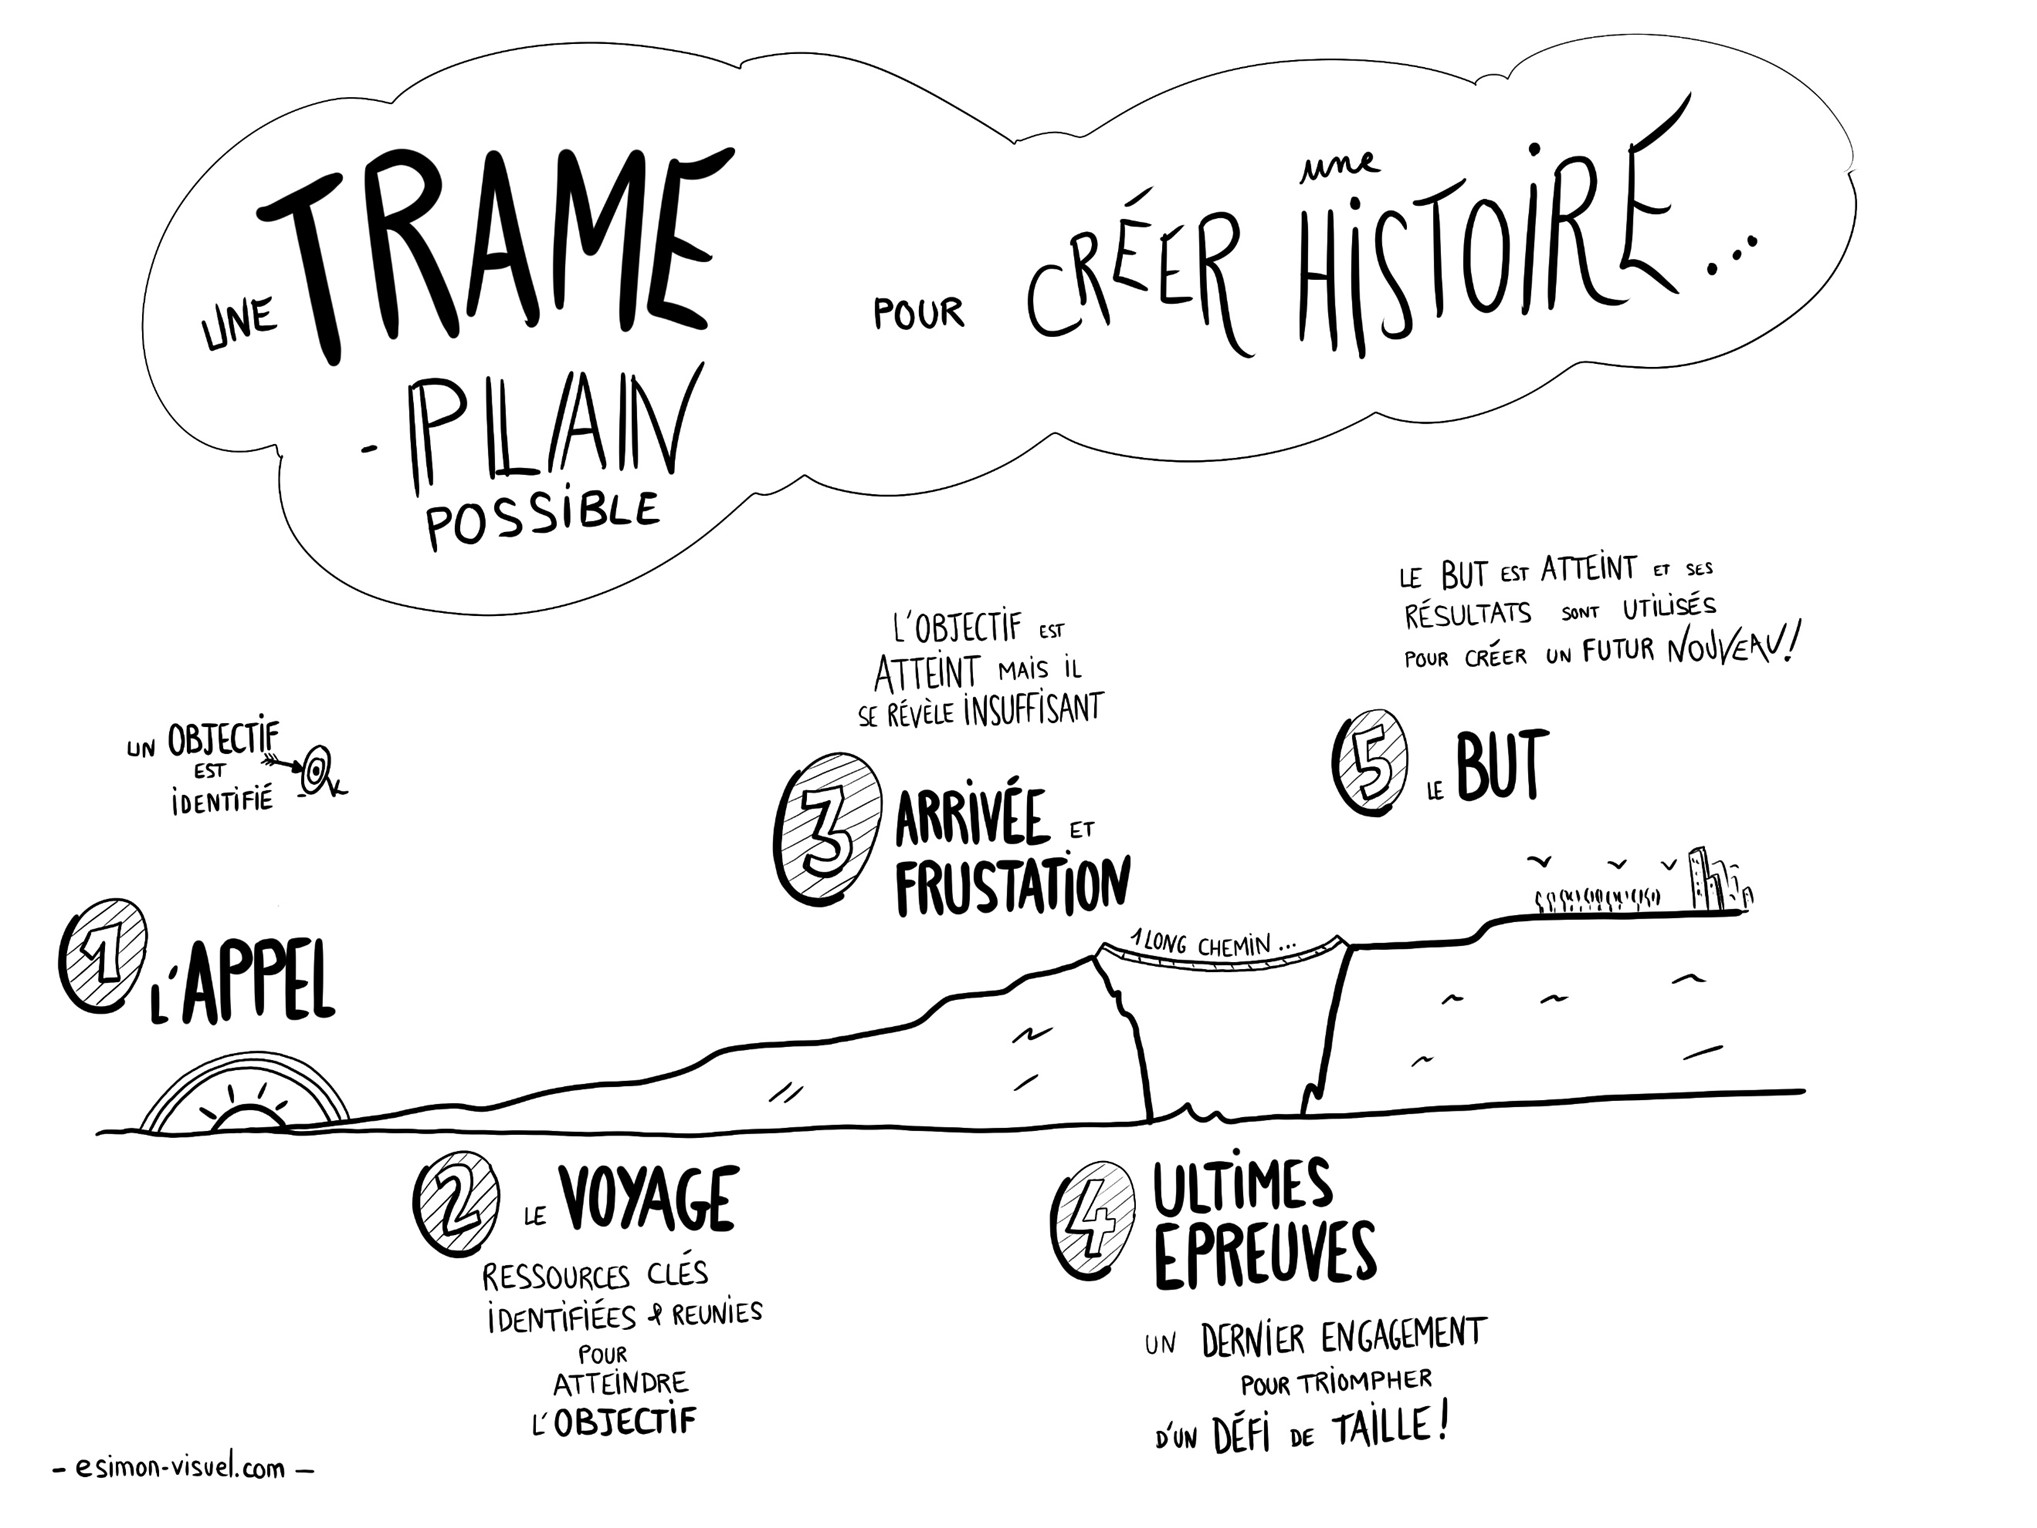 UNE TRAME
- PLAN
POSSIBLE
POUR CRÉER une HISTOIRE...
UN OBJECTIF
EST
IDENTIFIÉ
1 L'APPEL
2 LE VOYAGE
RESSOURCES CLÉS
IDENTIFIÉES & REUNIES
POUR
ATTEINDRE
L'OBJECTIF
L'OBJECTIF EST
ATTEINT MAIS IL
SE RÉVÈLE INSUFFISANT
3 ARRIVÉE ET
FRUSTATION
1 LONG CHEMIN...
4 ULTIMES
EPREUVES
UN DERNIER ENGAGEMENT
POUR TRIOMPHER
D'UN DÉFI DE TAILLE!
LE BUT EST ATTEINT ET SES
RÉSULTATS SONT UTILISÉS
POUR CRÉER UN FUTUR NOUVEAU!
5 LE BUT
- esimon-visuel.com -